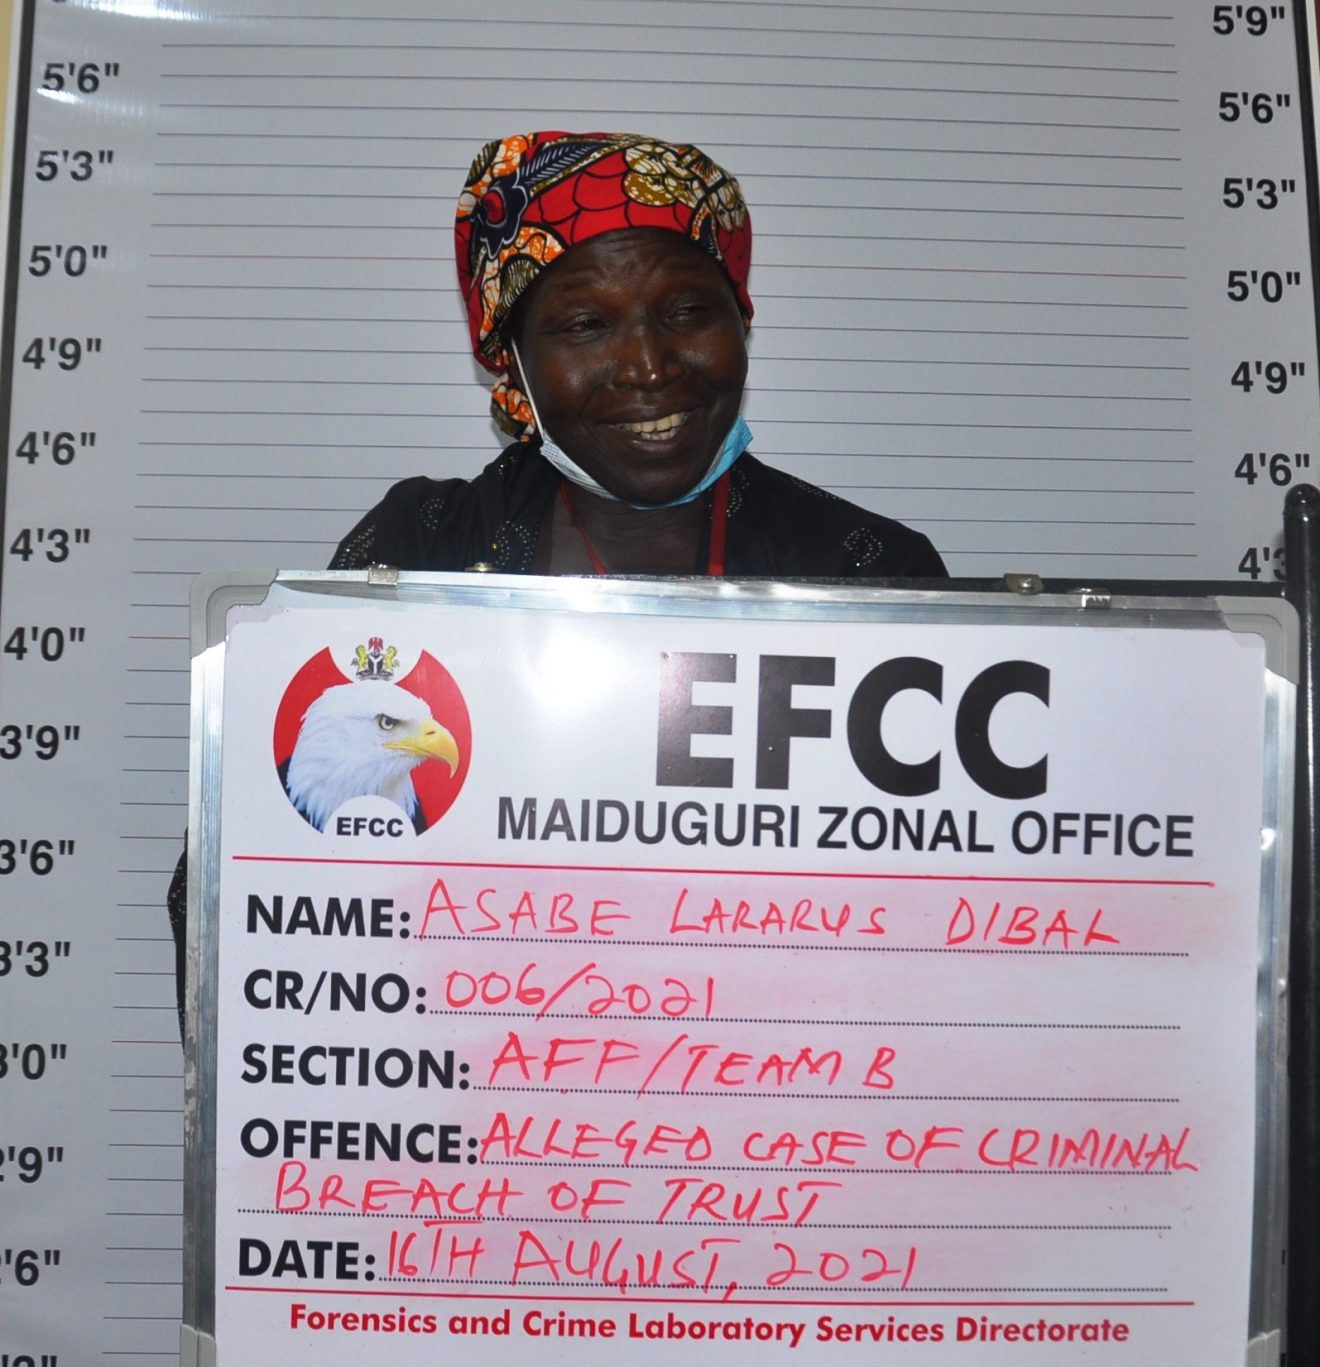 5'9"
5'6"
5'6"
5'3"
5'3"
5'0"
5'0"
4'9"
4'9"
4'6"
4'6"
4'3"
4'3
4'0"
3'9"
3'6"
3'3"
3'0"
2'9"
2'6"
EFCC
EFCC
MAIDUGURI ZONAL OFFICE
NAME: ASABE LARARUS DIBAL
CR/NO: 006/2021
SECTION: AFF/TEAM B
OFFENCE: ALLEGED CASE OF CRIMINAL
BREACH OF TRUST
DATE: 16TH AUGUST, 2021
Forensics and Crime Laboratory Services Directorate